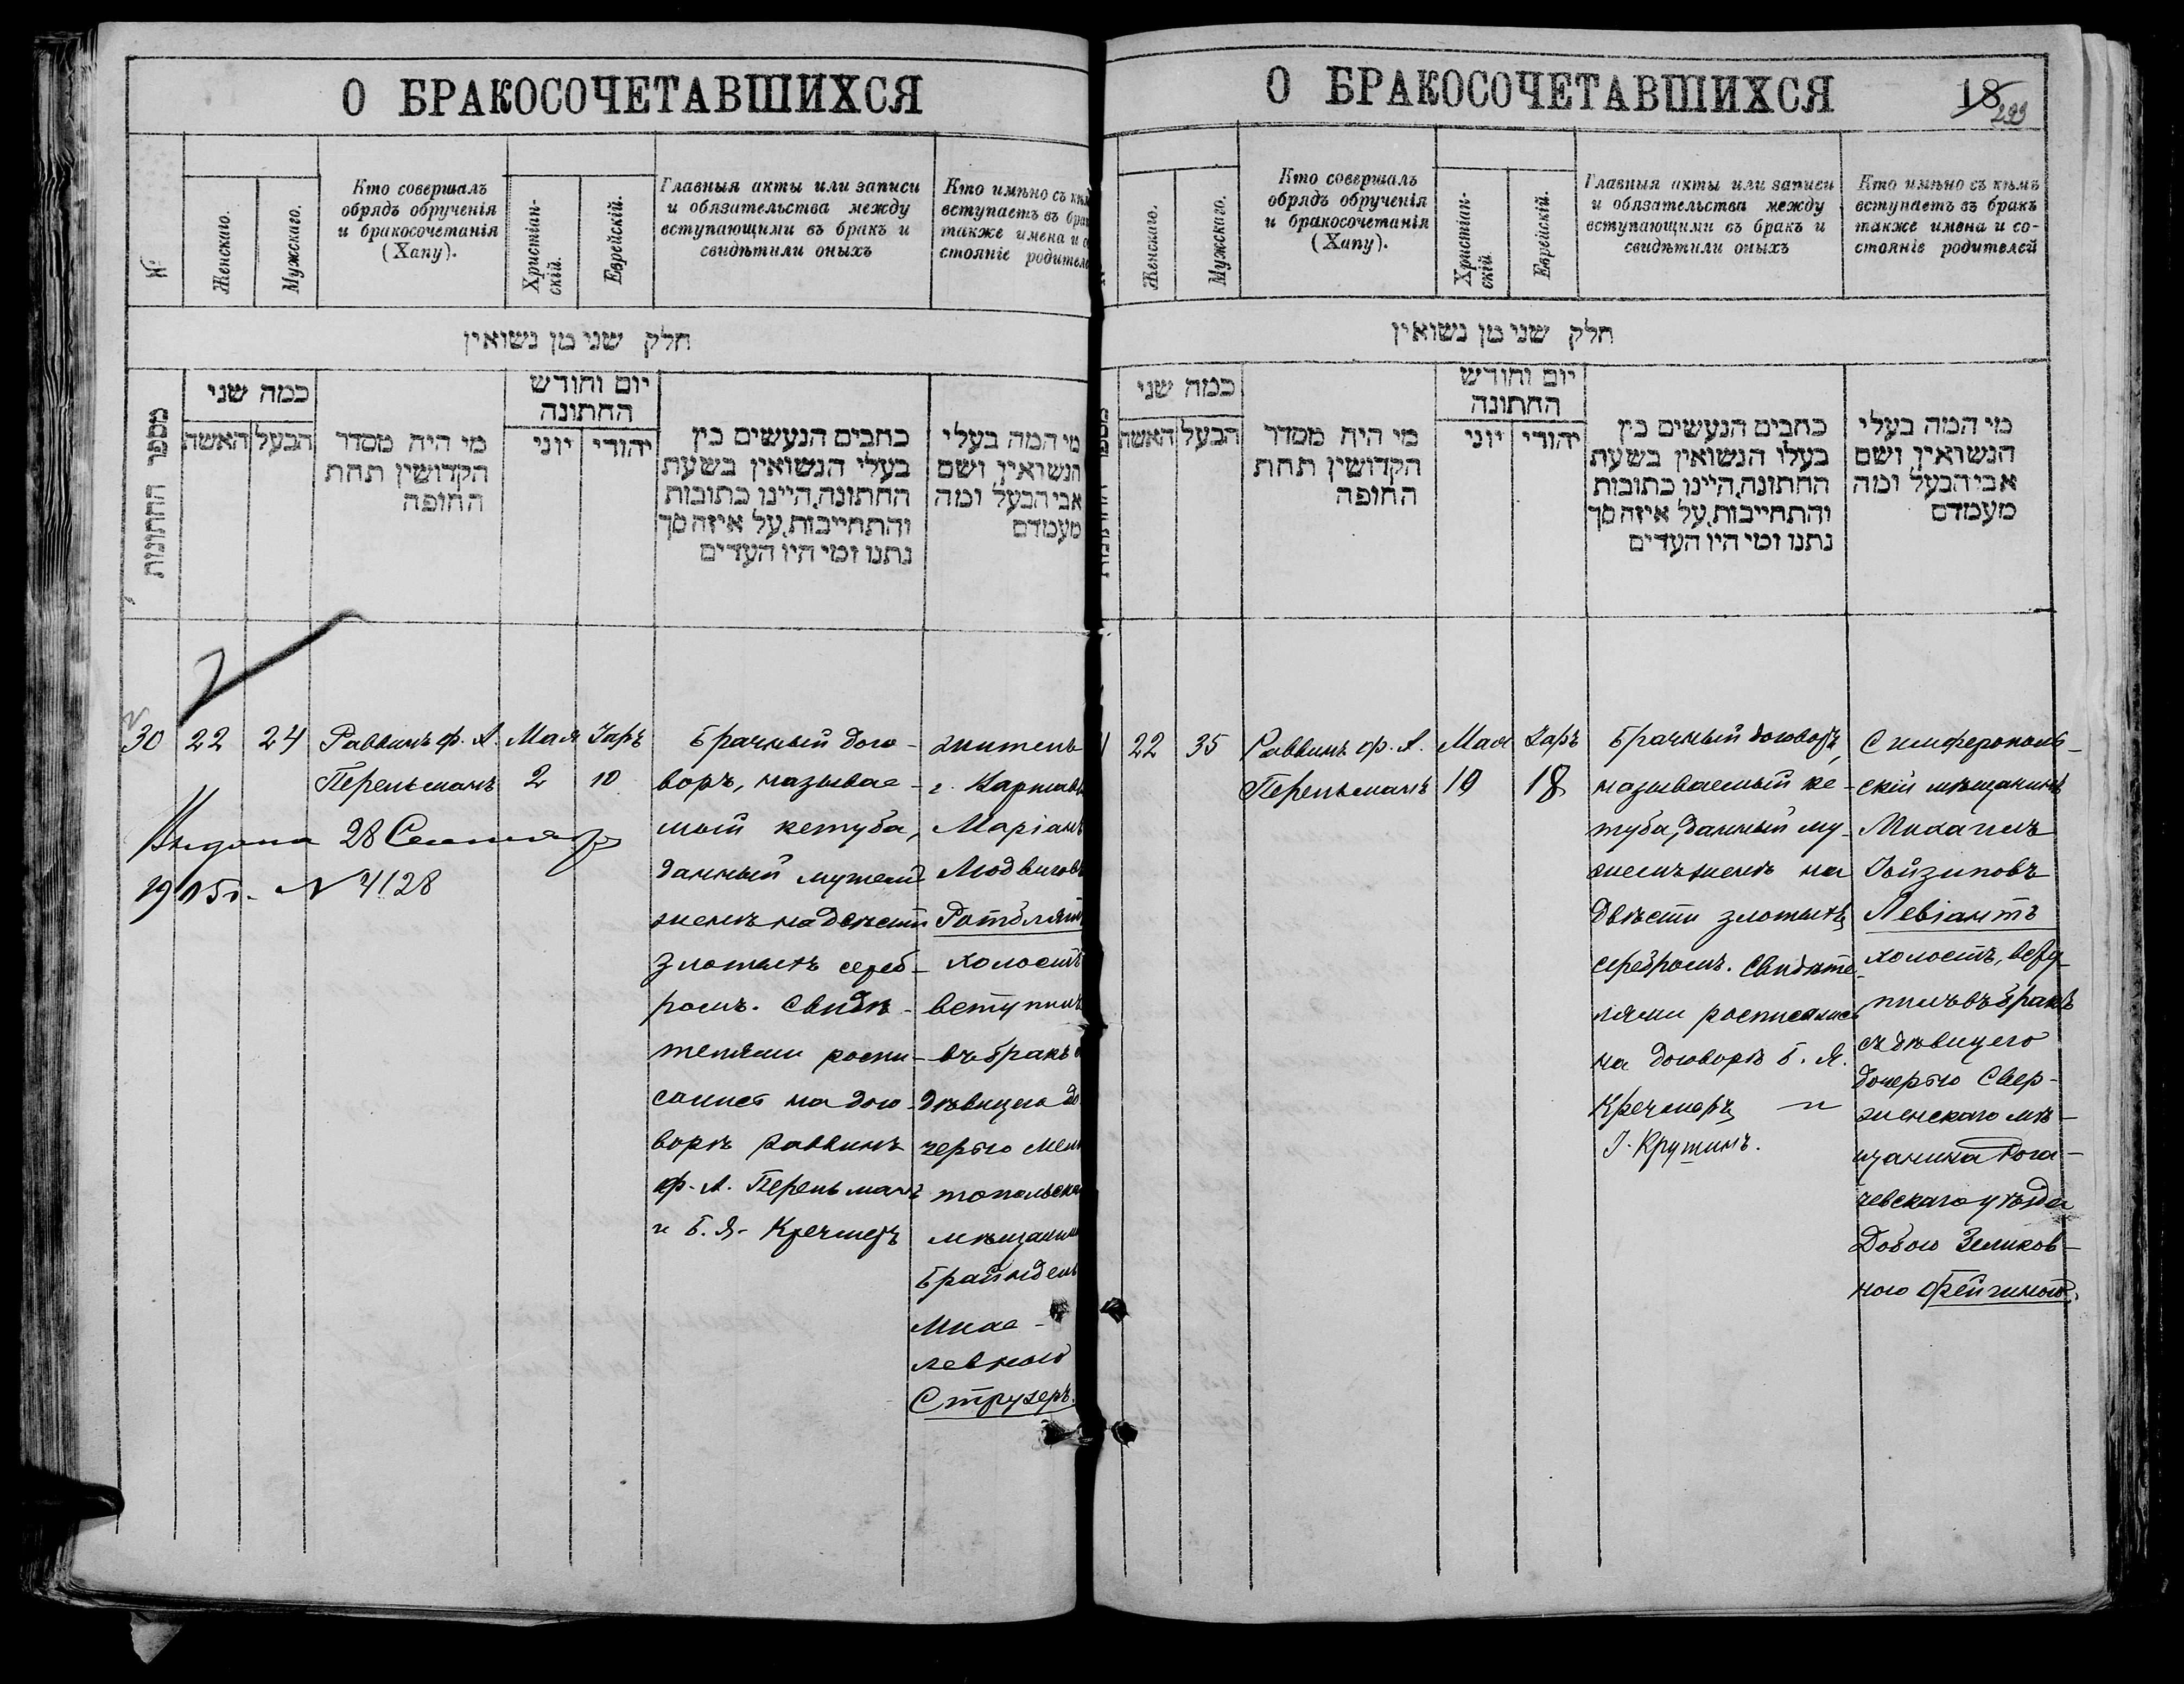 О БРАКОСОЧЕТАВШИХСЯ
№
Женскаго.
Мужскаго.
Кто совершалъ
обрядъ обрученія
и бракосочетанія
(Хапу).
Христіан-
скій.
Еврейскій.
Главныя акты или записи
и обязательства между
вступающими въ бракъ и
свидѣтили оныхъ
Кто имѣно съ
вступаетъ въ
также имена и
стояніе
חלק שני מן נשואין
מספר החתונות
כמה שני
האשה
הבעל
מי היה מסדר
הקדושין תחת
החופה
יום וחודש
החתונה
יוני
יהודי
כתבים הנעשים בין
בעלי הנשואין בשעת
החתונה, היינו כתובות
והתחייבות, על איזה סך
נתנו ומי היו העדים
מי המה בעלי
הנשואין ושם
אבי הבעל ומה
מעמדם
30
22
24
Раввинъ ф. А.
Перельманъ
Мая
2
Іаръ
10
Брачный дого-
воръ, называе-
мый кетуба,
данный мужемъ
женѣ на двѣсти
злотыхъ сереб-
ромъ. Свидѣ-
телями роспи-
сались на дого-
ворѣ раввинъ
ф. А. Перельманъ
и Б. Я. Кречмеръ
житель
г. Варшавы
Маріанъ
Людвигов
Ротблят
холостъ
вступилъ
въ бракъ
дѣвицею до
черью Мели
топольска
мѣщанина
Брайндель
Михе-
левною
Струзеръ.
Выдана 28 Сентября
1915 г. № 4128
О БРАКОСОЧЕТАВШИХСЯ
18
299
Женскаго.
Мужскаго.
Кто совершалъ
обрядъ обрученія
и бракосочетанія
(Хапу).
Христіан-
скій
Еврейскій.
Главныя акты или записи
и обязательства между
вступающими въ бракъ и
свидѣтили оныхъ
Кто имѣно съ кѣмъ
вступаетъ въ бракъ
также имена и со-
стояніе родителей
חלק שני מן נשואין
כמה שני
האשה
הבעל
מי היה מסדר
הקדושין תחת
החופה
יום וחודש
החתונה
יוני
יהודי
כתבים הנעשים בין
בעלי הנשואין בשעת
החתונה, היינו כתובות
והתחייבות, על איזה סך
נתנו ומי היו העדים
מי המה בעלי
הנשואין ושם
אבי הבעל ומה
מעמדם
22
35
Раввинъ ф. А.
Перельманъ
Мая
10
Іаръ
18
Брачный договоръ,
называемый ке-
туба, данный му-
жемъ женѣ на
двѣсти злотыхъ
серебромъ. Свидѣте-
лями росписались
на договорѣ Б. Я.
Кречмеръ и
І. Крутинъ.
Симферополь-
скій мѣщанинъ
Михаилъ
Іойзиповъ
Левіантъ
холостъ, всту-
пилъ въ бракъ
съ дѣвицею
дочерью Свер-
женскаго мѣ-
щанина Рога-
чевскаго уѣзда
Добою Зеликов-
ною Фейгиною.